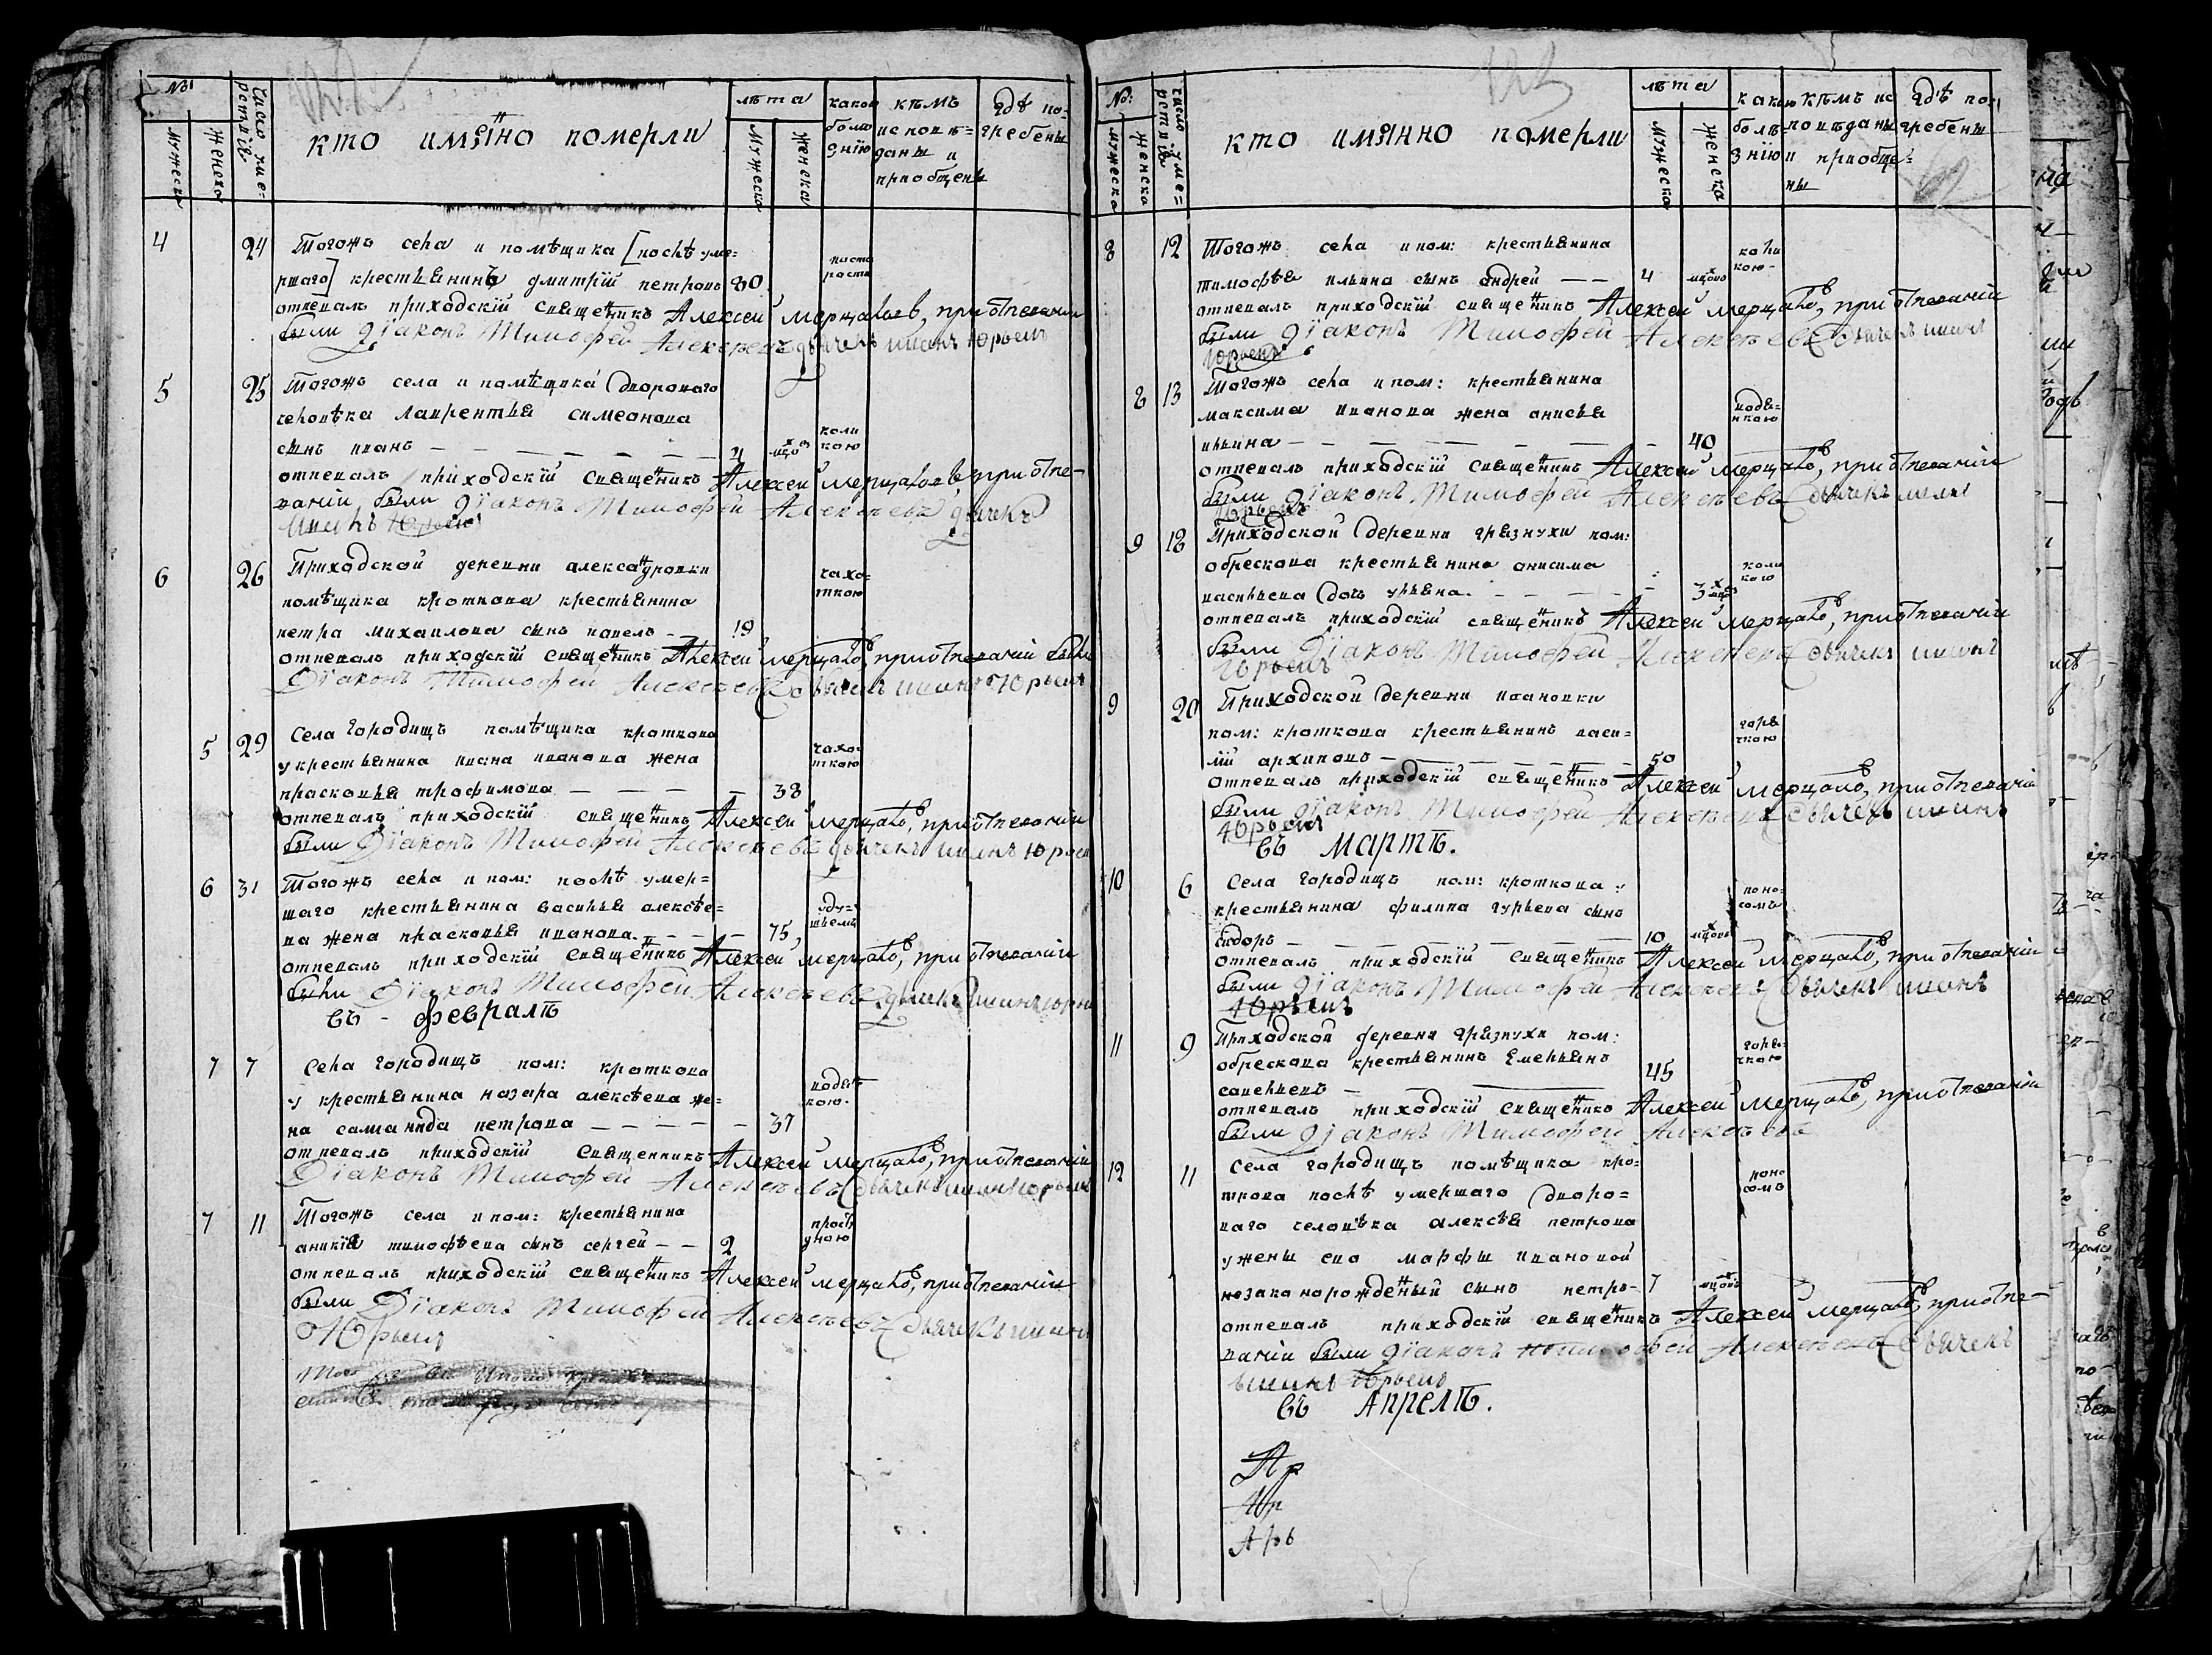 №:
Мужеска
Женска
число умершїв
кто имянно померли
лѣта
Мужеска
Женска
какою болезнїю
кѣмъ исповѣданы и приобщены
гдѣ погребены
4 24 Тогожъ села и помѣщика [послѣ уме=
ршаго] крестьянинъ дмитрїй петровъ 80
отпевалъ приходскїй священникъ Алексей Мерцаловъ, при отпеванїи
были дїаконъ Тимофей Алексѣевъ дьячекъ иванъ Юрьевъ
5 25 Тогожъ села и помѣщика двороваго
человѣка лаврентья симеонова
сынъ иванъ — 4 мцовъ коликою
отпевалъ приходскїй священникъ Алексей Мерцаловъ, при отпе-
ванїи были дїаконъ Тимофей Алексѣевъ дьячекъ
Иванъ Юрьевъ
6 26 Приходской деревни александровки чахоткою
помѣщика кроткова крестьянина
петра михаилова сынъ павелъ — 19
отпевалъ приходскїй священникъ Алексей Мерцаловъ, при отпеванїи были
Дїаконъ Тимофей Алексѣевъ дьячекъ иванъ Юрьевъ
5 29 Села городищъ помѣщика кроткова
у крестьянина ивана иванова жена чахоткою
прасковья трофимова — 38
отпевалъ приходскїй священникъ Алексей Мерцаловъ, при отпеванїи
были Дїаконъ Тимофей Алексѣевъ дьячекъ иванъ Юрьев
6 31 Тогожъ села и пом: послѣ умер=
шаго крестьянина василья алексѣе= удушьемъ
ва жена прасковья иванова — 75
отпевалъ приходскїй священникъ Алексей Мерцаловъ, при отпеванїи
были Дїаконъ Тимофей Алексѣевъ дьячекъ иванъ юрьев
въ - февралѣ
7 7 Села городищъ пом: кроткова
у крестьянина назара алексѣева же= водянкою.
на саманида петрова — 37
отпевалъ приходскїй священникъ Алексей Мерцаловъ, при отпеванїи
Дїаконъ Тимофей Алексѣевъ дьячекъ иванъ юрьевъ
7 11 Тогожъ села и пом: крестьянина
аникїя тимофѣева сынъ сергей — 2
отпевалъ приходскїй священникъ Алексей Мерцаловъ, при отпеванїи
были Дїаконъ Тимофей Алексѣевъ дьячекъ иванъ
Юрьевъ
№:
Мужеска
Женска
число умершїв
кто имянно померли
лѣта
Мужеска
Женска
какою болѣзнїю
кѣмъ исповѣданы и приобщены
гдѣ погребены
8 12 Тогожъ села и пом: крестьянина коликою
тимофѣя ильина сынъ андрей — 4 мцовъ
отпевалъ приходскїй священникъ Алексей Мерцаловъ, при отпеванїи
были дїаконъ Тимофей Алексѣевъ дьячекъ иванъ
Юрьевъ
8 13 Тогожъ села и пом: крестьянина
максима иванова жена анисья водянкою
ильина — 40
отпевалъ приходскїй священникъ Алексей Мерцаловъ, при отпеванїи
были дїаконъ Тимофей Алексѣевъ дьячекъ иванъ
Юрьевъ
9 18 Приходской деревни грязнухи пом:
обрескова крестьянина анисима коликою
васильева дочь ульяна — 3 мцовъ
отпевалъ приходскїй священникъ Алексей Мерцаловъ, при отпеванїи
были Дїаконъ Тимофей Алексѣевъ дьячекъ иванъ
Юрьевъ
9 20 Приходской деревни ивановки
пом: кроткова крестьянинъ васи= горячкою
лїй архиповъ — 50
отпевалъ приходскїй священникъ Алексей Мерцаловъ, при отпеванїи
были дїаконъ Тимофей Алексѣевъ дьячекъ иванъ
Юрьевъ
въ мартѣ.
10 6 Села городищъ пом: кроткова у поносомъ
крестьянина филипа гурьева сынъ
Ѳедоръ — 10 мцовъ
отпевалъ приходскїй священникъ Алексей Мерцаловъ, при отпеванїи
были дїаконъ Тимофей Алексѣевъ дьячекъ иванъ
Юрьевъ
11 9 Приходской деревни грязнухи пом: горячкою
обрескова крестьянинъ Емельянъ
савельевъ — 45
отпевалъ приходскїй священникъ Алексей Мерцаловъ, при отпеванїи
были дїаконъ Тимофей Алексѣевъ
12 11 Села городищъ помѣщика кро=
ткова послѣ умершаго дворо= поносомъ
ваго человѣка алексѣя петрова
у жены ево марфы ивановой
незаконорожденый сынъ петръ — 7 мцовъ
отпевалъ приходскїй священникъ Алексей Мерцаловъ, при отпе-
ванїи были дїаконъ тимофей Алексѣевъ дьячекъ
иванъ Юрьевъ
въ Апрелѣ.
Ар
Юр
Арь